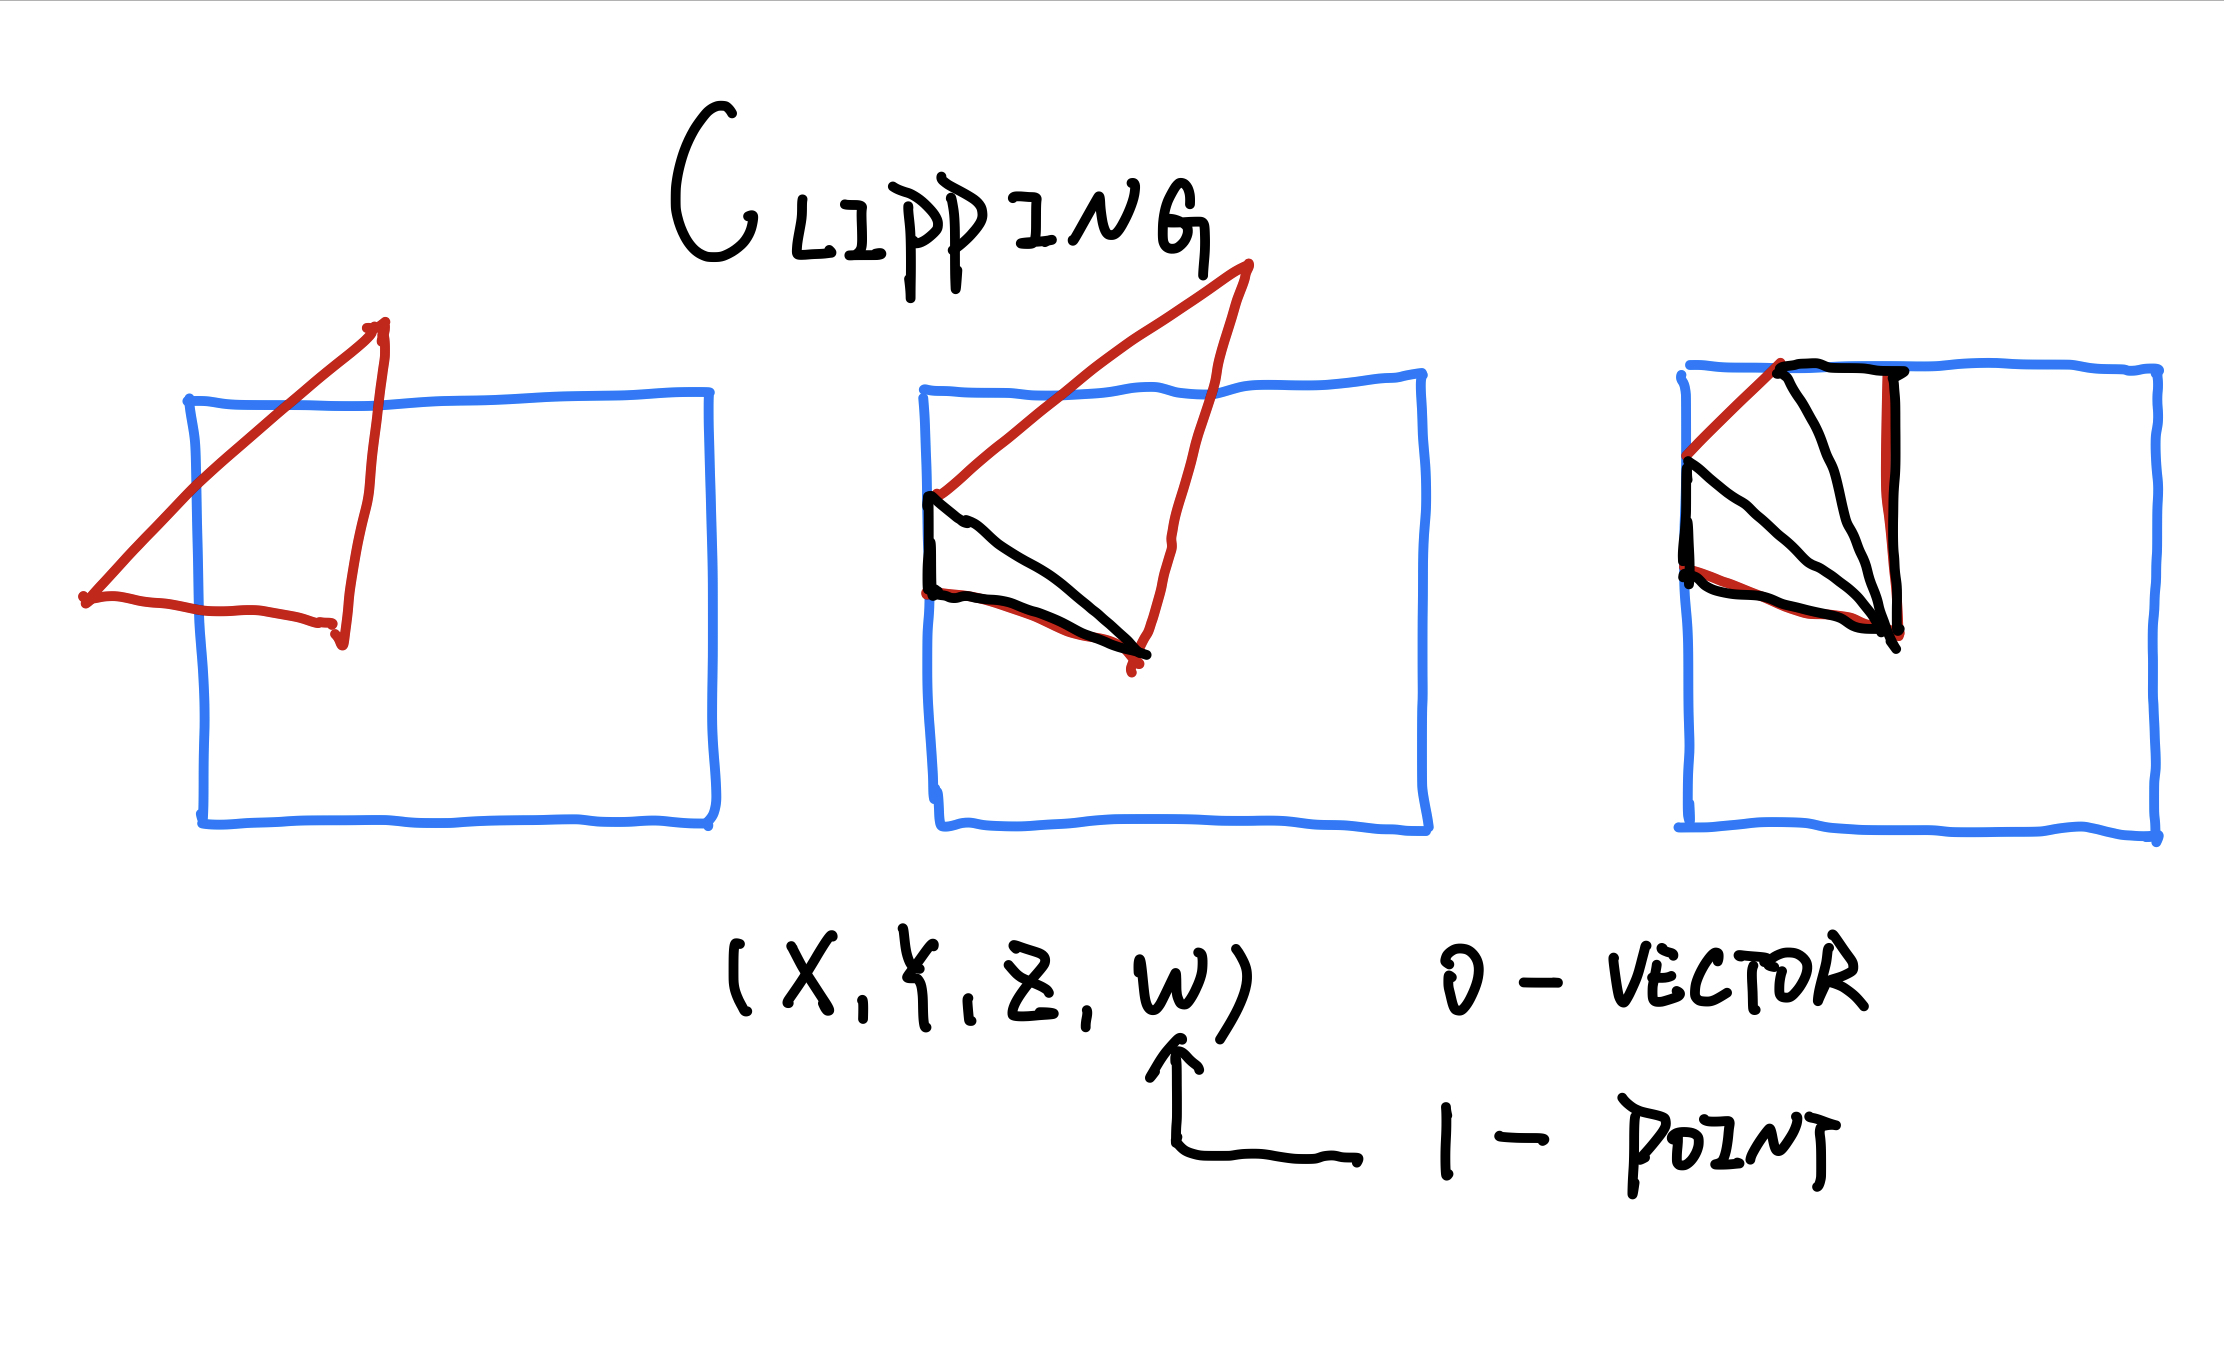 CLIPPING
(X, Y, Z, W) 0 - VECTOR
1 - POINT